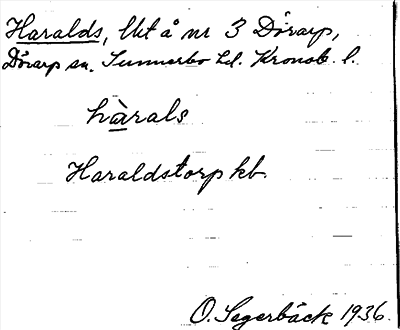 Haralds, lht å nr 3 Dörarp,
Dörarp sn. Sunnerbo hd. Kronob. l.
hàrals
Haraldstorp kb
O. Sagerbäck 1936.